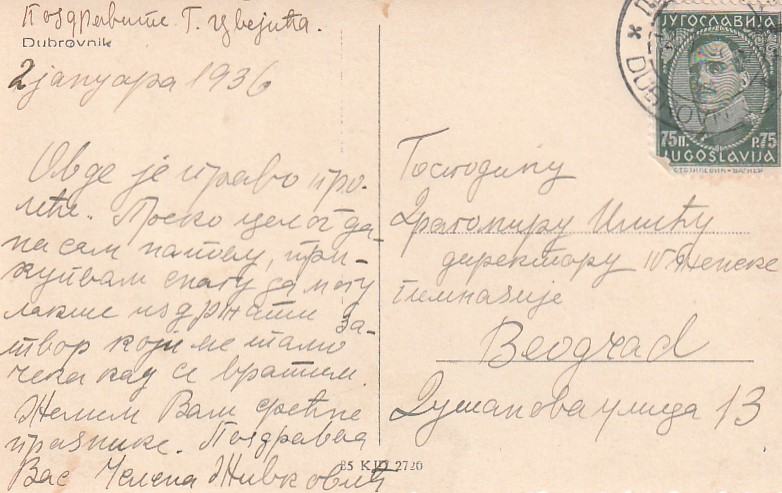 Поздравите Г. Цвејића.
Dubrovnik
2 јануара 1936
Овде је право про-
леће. Преко целог да-
на сам напољу, при-
купљам снагу да могу
лакше издржати за-
твор који ме тамо
чека кад се вратим.
Желим Вам срећне
празнике. Поздравља
Вас Јелена Живковић
ЈУГОСЛАВИЈА
75П. P.75
JUGOSLAVIJA
DUBROVNIK
Господину
Драгомиру Илићу
директору IV Женске
гимназије
Београд
Душанова улица 13
85 KJD 2720